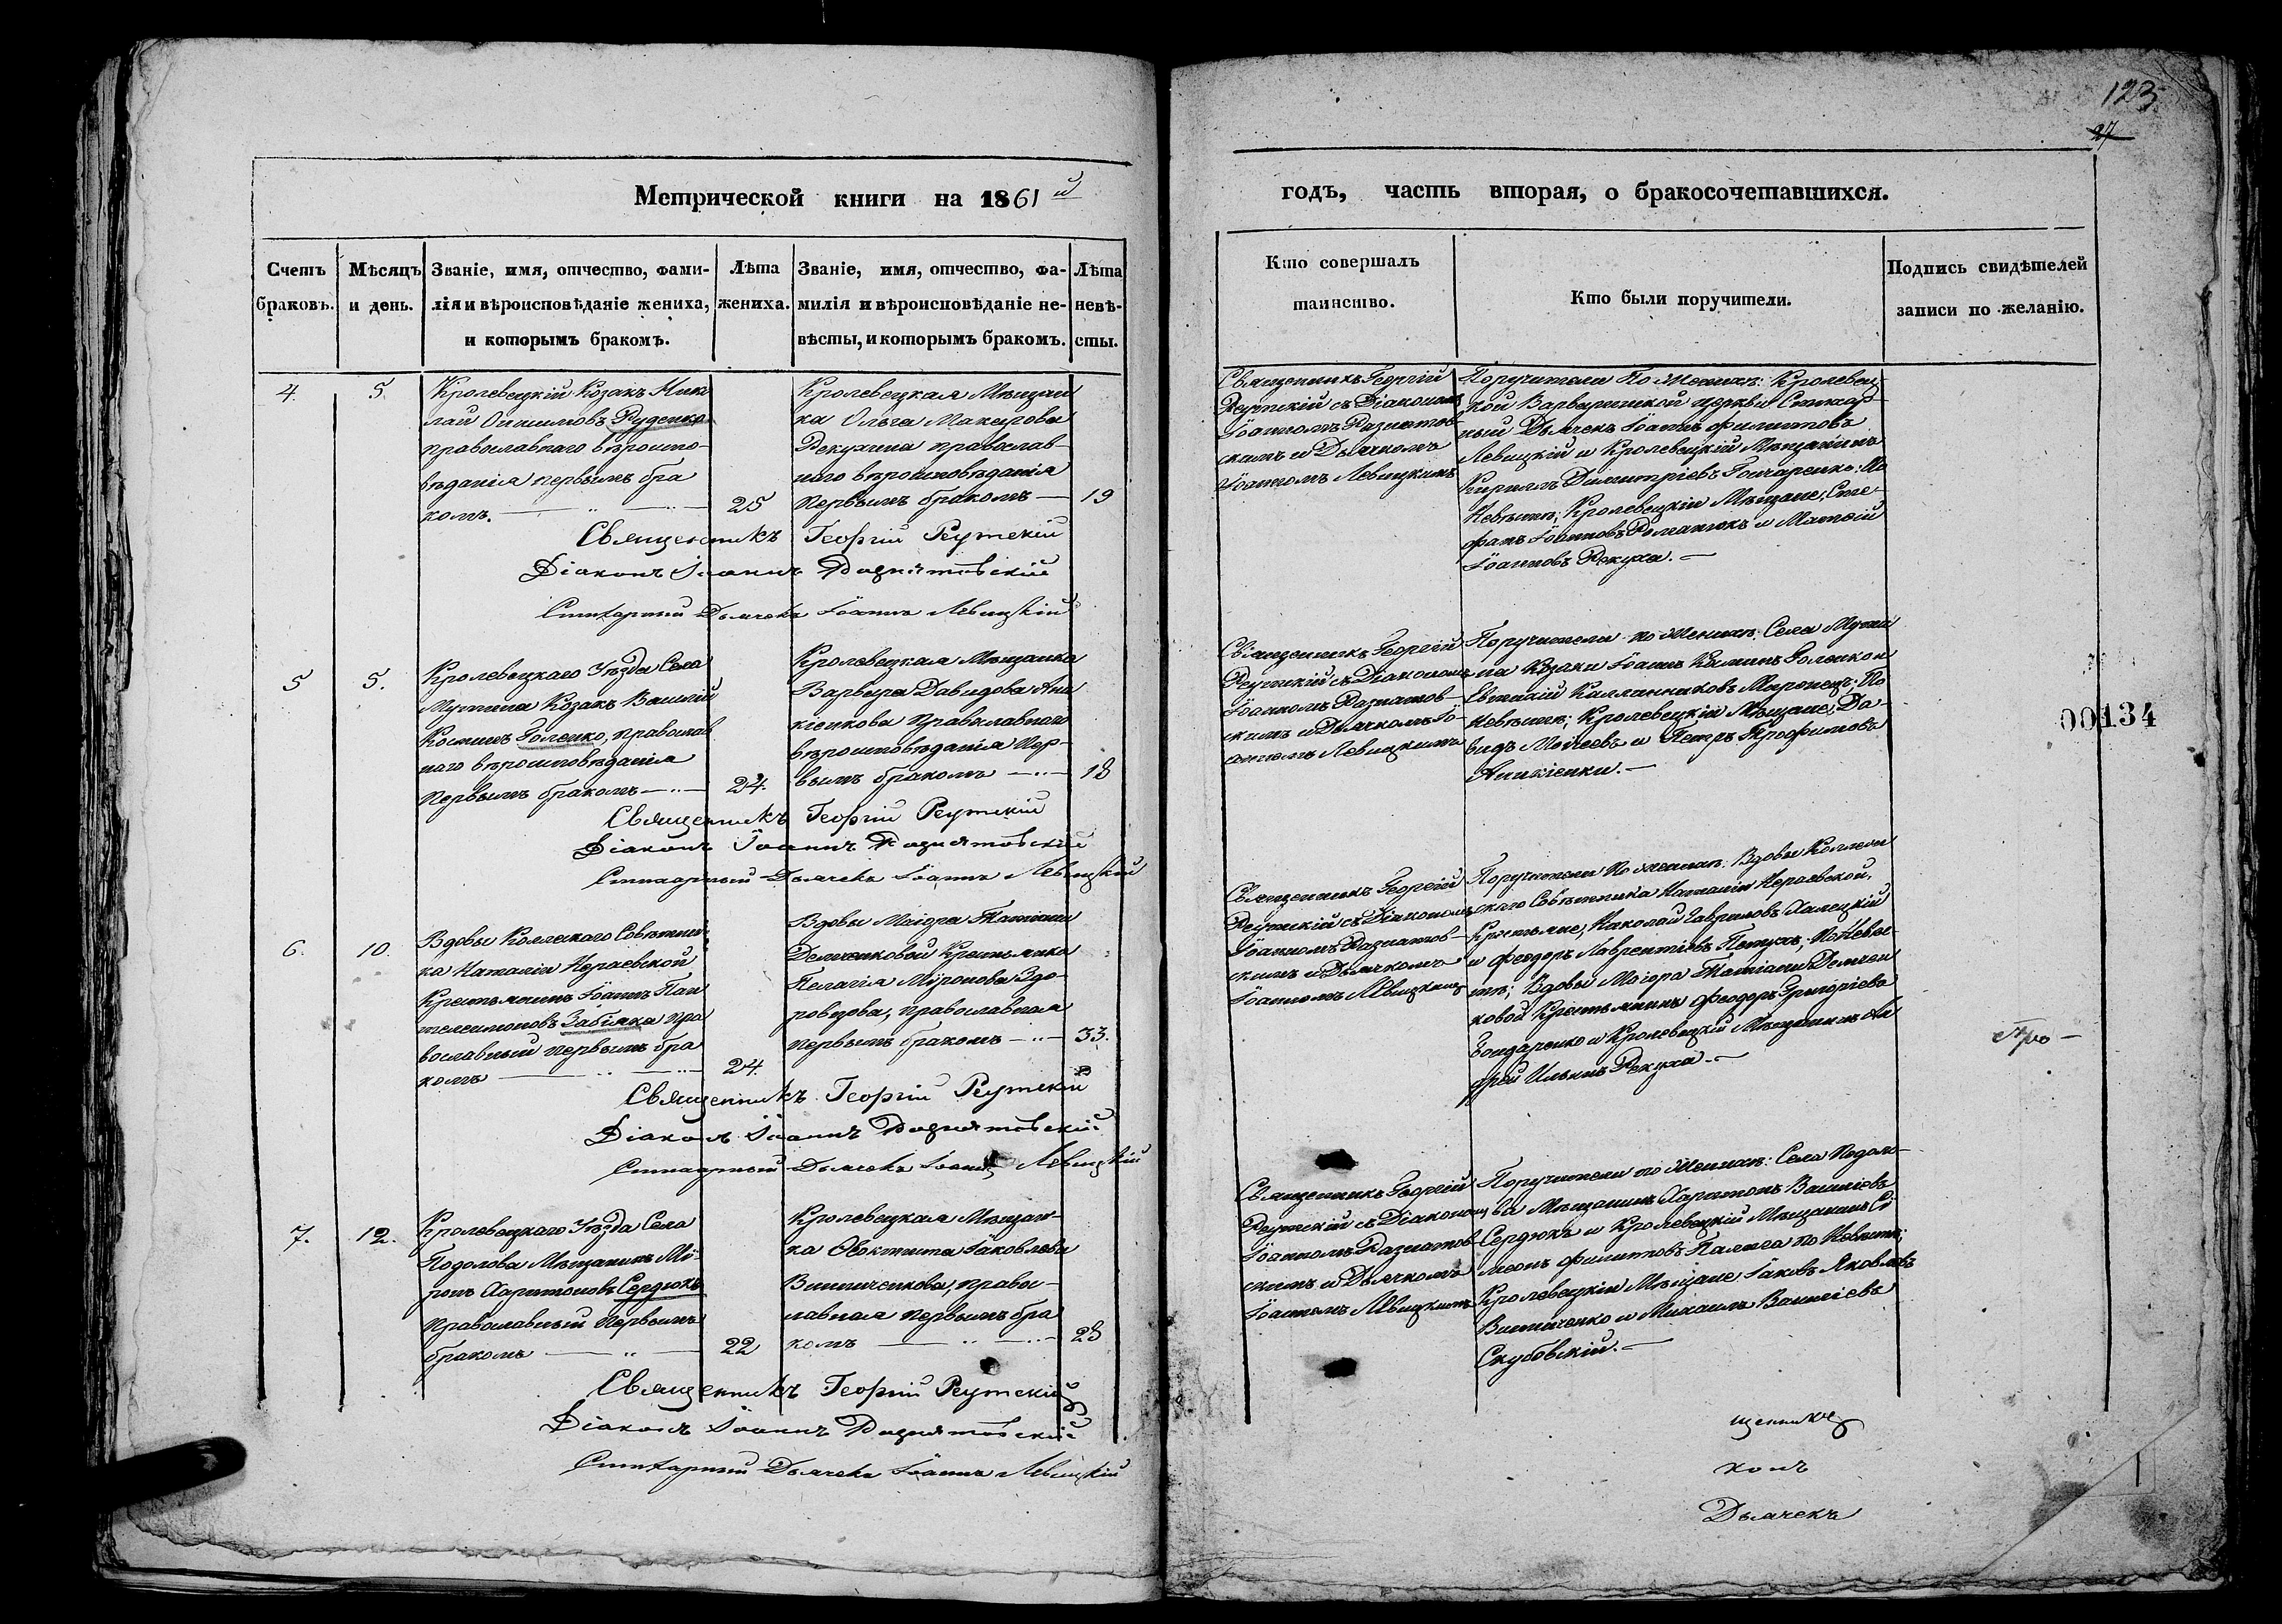 123
27
Метрической книги на 1861й
годъ, часть вторая, о бракосочетавшихся.
Счетъ браковъ.
Мѣсяцъ и день.
Званіе, имя, отчество, фами-
лія и вѣроисповѣданіе жениха,
и которымъ бракомъ.
Лѣта
жениха.
Званіе, имя, отчество, фа-
милія и вѣроисповѣданіе не-
вѣсты, и которымъ бракомъ.
Лѣта
невѣ-
сты.
Кто совершалъ
таинство.
Кто были поручители.
Подпись свидѣтелей
записи по желанію.
4.
5.
Кролевецкій Козакъ Нико
лай Онисимовъ Руденко
православнаго вѣроиспо-
вѣданія первымъ бра
комъ.
25
Кролевецкая Мѣщан
ка Ольга Макарова
Рекухина православ-
наго вѣроисповѣданія
первымъ бракомъ
19
Священникъ Георгій
Реутскій съ Діакономъ
Іоанномъ Разнатов-
скимъ и Дьячкомъ
Іоанномъ Левицкимъ
Поручители По Женихѣ: Кролевец-
кой Варваринской церкви Стихар-
ный Дьячекъ Іоаннъ Филиповъ
Левицкій и Кролевецкій Мѣщанинъ
Кириллъ Димитріевъ Гончаренко; По
Невѣстѣ; Кролевецкіи Мѣщане, Сте-
фанъ Іоанновъ Романюкъ и Матөей
Іоанновъ Рекуха.
Священникъ Георгій Реутскій
Діаконъ Іоаннъ Разнатовскій
Стихарный Дьячекъ Іоаннъ Левицкій
5
5.
Кролевецкаго Уѣзда Села
Мутина Козакъ Василій
Косминъ Голенко, православ
наго вѣроисповѣданія
первымъ бракомъ
24.
Кролевецкая Мѣщанка
Варвара Давидова Ани
кіенкова православнаго
вѣроисповѣданія пер-
вымъ бракомъ
18
Священникъ Георгій
Реутскій съ Діакономъ
Іоанномъ Разнатов-
скимъ и Дьячкомъ Іо-
анномъ Левицкимъ
Поручители по Женихѣ: Села Мути
на Козаки Іоаннъ Косминъ Голенко и
Евтихій Каллинниковъ Миронецъ; По
Невѣстѣ; Кролевецкіи Мѣщане, Да-
видъ Моисеевъ и Петръ Трофимовъ
Аникіенки.
Священникъ Георгій Реутскій
Діаконъ Іоаннъ Разнатовскій
Стихарный Дьячекъ Іоаннъ Левицкій
00134
6.
10.
Вдовы Коллежскаго Совѣтни-
ка Наталіи Нераевской
Крестьянинъ Іоаннъ Пан
телеимоновъ Забіяка пра
вославный первымъ бра
комъ
24.
Вдовы Маіора Татіаны
Демченковой Крестьянка
Пелагія Міронова Здо-
ровцова, православная
первымъ бракомъ
33.
Священникъ Георгій
Реутскій съ Діакономъ
Іоанномъ Разнатов-
скимъ и Дьячкомъ
Іоанномъ Левицкимъ
Поручители По женихѣ: Вдовы Коллеж
скаго Совѣтника Наталіи Нераевской,
Крестьяне, Николай Гавриловъ Халецкій
и Феодоръ Лаврентіевъ Петухъ; По Невѣс-
тѣ; Вдовы Маіора Татіаны Демчен
ковой Крестьянинъ Феодоръ Григоріевъ
Бондаренко и Кролевецкій Мѣщанинъ Ан
дрей Ильинъ Рекуха.
Про-
Священникъ Георгій Реутскій
Діаконъ Іоаннъ Разнатовскій
Стихарный Дьячекъ Іоаннъ Левицкій
7.
12.
Кролевецкаго Уѣзда Села
Подолова Мѣщанинъ Мі-
ронъ Харитоновъ Сердюкъ
православный первымъ
бракомъ
22
Кролевецкая Мѣщан-
ка Өеоктиста Іаковлева
Винниченкова, правос-
лавная первымъ бра
комъ
28
Священникъ Георгій
Реутскій съ Діакономъ
Іоанномъ Разнатов
скимъ и Дьячкомъ
Іоанномъ Левицкимъ
Поручители по Женихѣ: Села Подоло-
ва Мѣщанинъ Харитонъ Василіевъ
Сердюкъ и Кролевецкій Мѣщанинъ Сі
меонъ Филиповъ Паляга по Невѣстѣ;
Кролевецкіи Мѣщане Іаковъ Яковлевъ
Винниченко и Михаилъ Василіевъ
Скубовскій.
Священникъ Георгій Реутскій
Діаконъ Іоаннъ Разнатовскій
Стихарный Дьячекъ Іоаннъ Левицкій
щенникъ
конъ
Дьячекъ